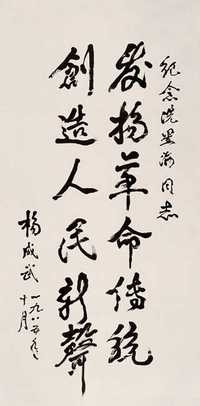 纪念冼星海同志
发扬革命传统
創造人民新聲
楊成武
一九八五年
十月